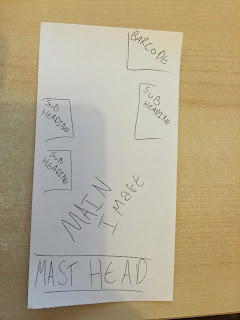 BARCODE
SUB
HEADING
SUB
HEADING
SUB
HEADING
MAIN
IMAGE
MAST HEAD